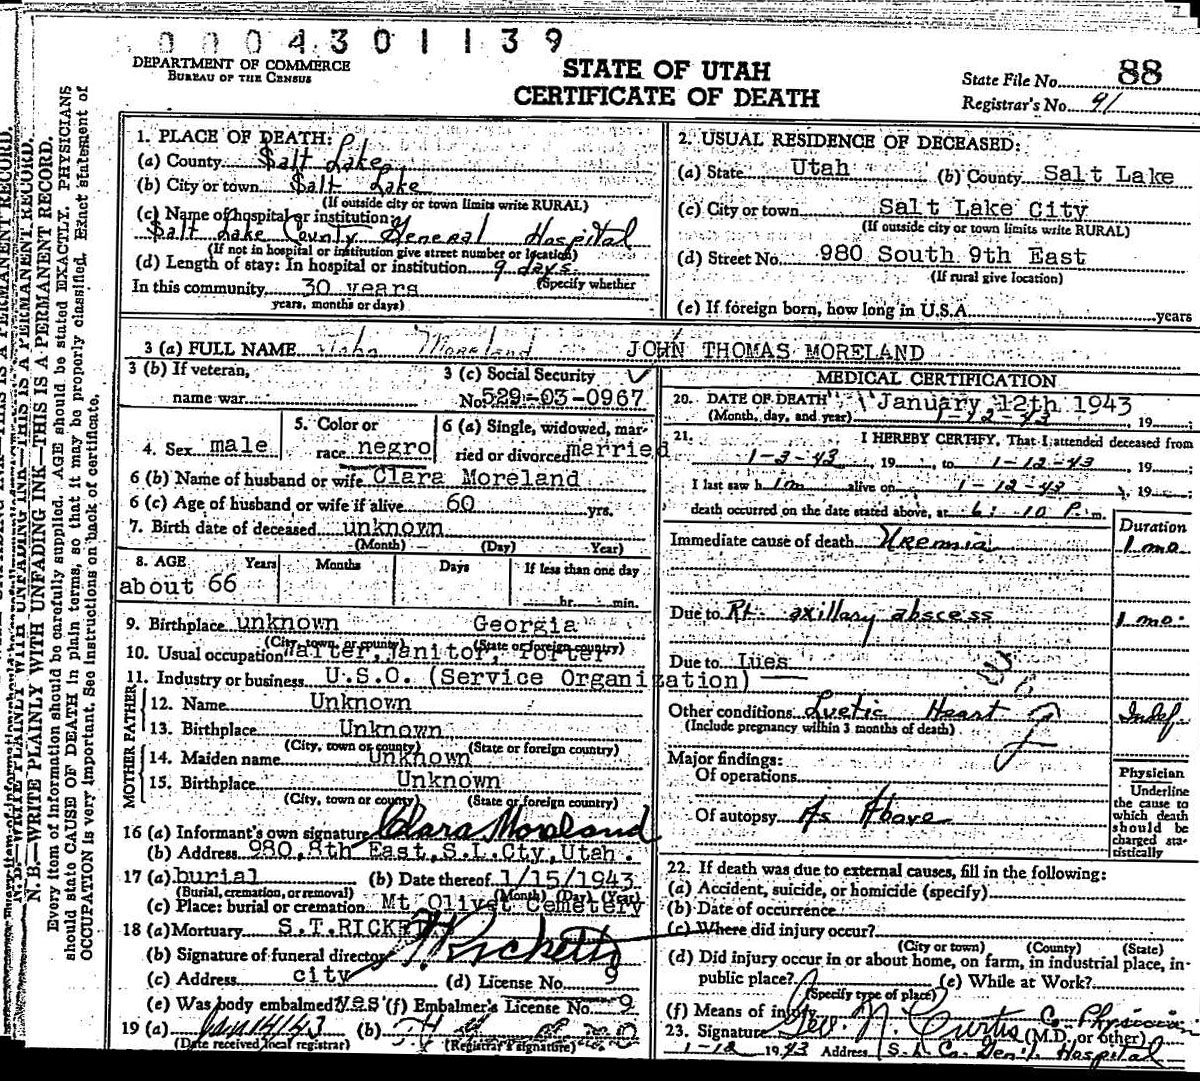 0004301139
DEPARTMENT OF COMMERCE
BUREAU OF THE CENSUS
STATE OF UTAH
CERTIFICATE OF DEATH
State File No. 88
Registrar's No. 91
1. PLACE OF DEATH:
(a) County Salt Lake
(b) City or town Salt Lake
(If outside city or town limits write RURAL)
(c) Name of hospital or institution:
Salt Lake County General Hospital
(If not in hospital or institution give street number or location)
(d) Length of stay: In hospital or institution 9 days
(Specify whether
In this community 30 years
years, months or days)
2. USUAL RESIDENCE OF DECEASED:
(a) State Utah (b) County Salt Lake
(c) City or town Salt Lake City
(If outside city or town limits write RURAL)
(d) Street No. 980 South 9th East
(If rural give location)
(e) If foreign born, how long in U.S.A. years
3 (a) FULL NAME John Moreland JOHN THOMAS MORELAND
3 (b) If veteran,
name war
3 (c) Social Security
No. 529-03-0967
4. Sex male
5. Color or
race negro
6 (a) Single, widowed, mar-
ried or divorced married
6 (b) Name of husband or wife Clara Moreland
6 (c) Age of husband or wife if alive 60 yrs.
7. Birth date of deceased unknown
(Month) (Day) (Year)
8. AGE Years Months Days If less than one day
about 66
hr. min.
9. Birthplace unknown Georgia
(City, town, or county) (State or foreign country)
10. Usual occupation Waiter, Janitor, Porter
11. Industry or business U.S.O. (Service Organization)
FATHER
12. Name Unknown
13. Birthplace Unknown
(City, town or county) (State or foreign country)
MOTHER
14. Maiden name Unknown
15. Birthplace Unknown
(City, town or county) (State or foreign country)
16 (a) Informant's own signature Clara Moreland
(b) Address 980, 8th East, S.L.Cty, Utah.
17 (a) burial (b) Date thereof 1/15/1943
(Burial, cremation, or removal) (Month) (Day) (Year)
(c) Place: burial or cremation Mt Olivet Cemetery
18 (a) Mortuary S.T.RICKETTS
(b) Signature of funeral director Ricketts
(c) Address city (d) License No. 9
(e) Was body embalmed? Yes (f) Embalmer's License No. 9
19 (a) Jan 14/43 (b)
(Date received local registrar) (Registrar's signature)
MEDICAL CERTIFICATION
20. DATE OF DEATH January 12th 1943
(Month, day, and year) 1-12-43, 19
21. I HEREBY CERTIFY, That I attended deceased from
1-3-43, 19, to 1-12-43, 19
I last saw h im alive on 1-12-43, 19
death occurred on the date stated above, at 6:10 P. m.
Duration
Immediate cause of death Uremia 1 mo.
Due to Rt. axillary abscess 1 mo.
Due to Lues
Other conditions Luetic Heart Indef.
(Include pregnancy within 3 months of death)
Major findings:
Of operations
Of autopsy As Above
Physician
Underline
the cause to
which death
should be
charged sta-
tistically
22. If death was due to external causes, fill in the following:
(a) Accident, suicide, or homicide (specify)
(b) Date of occurrence
(c) Where did injury occur?
(City or town) (County) (State)
(d) Did injury occur in or about home, on farm, in industrial place, in
public place? (e) While at Work?
(Specify type of place)
(f) Means of injury
23. Signature Geo. N. Curtis Co. Physician
(M.D. or other)
1-12 1943 Address S. L. Co. Gen'l Hospital
N.B.—WRITE PLAINLY WITH UNFADING INK—THIS IS A PERMANENT RECORD.
Every item of information should be carefully supplied. AGE should be stated EXACTLY. PHYSICIANS
should state CAUSE OF DEATH in plain terms, so that it may be properly classified. Exact statement of
OCCUPATION is very important. See instructions on back of certificate.